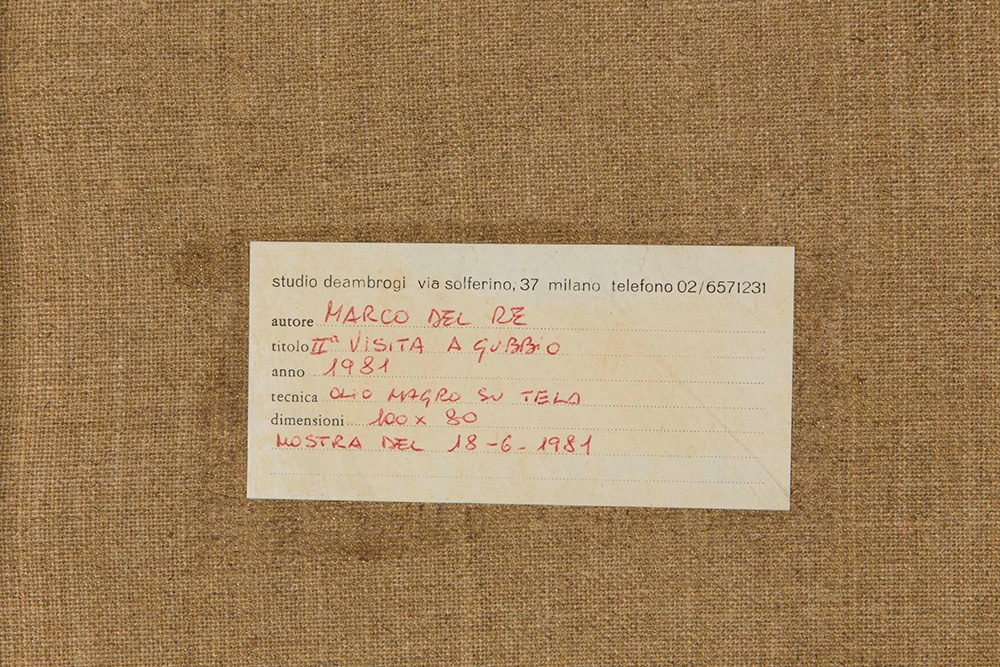 studio deambrogi via solferino, 37 milano telefono 02/6571231
autore MARCO DEL RE
titolo IIª VISITA A GUBBIO
anno 1981
tecnica OLIO MAGRO SU TELA
dimensioni 100 x 80
MOSTRA DEL 18-6-1981